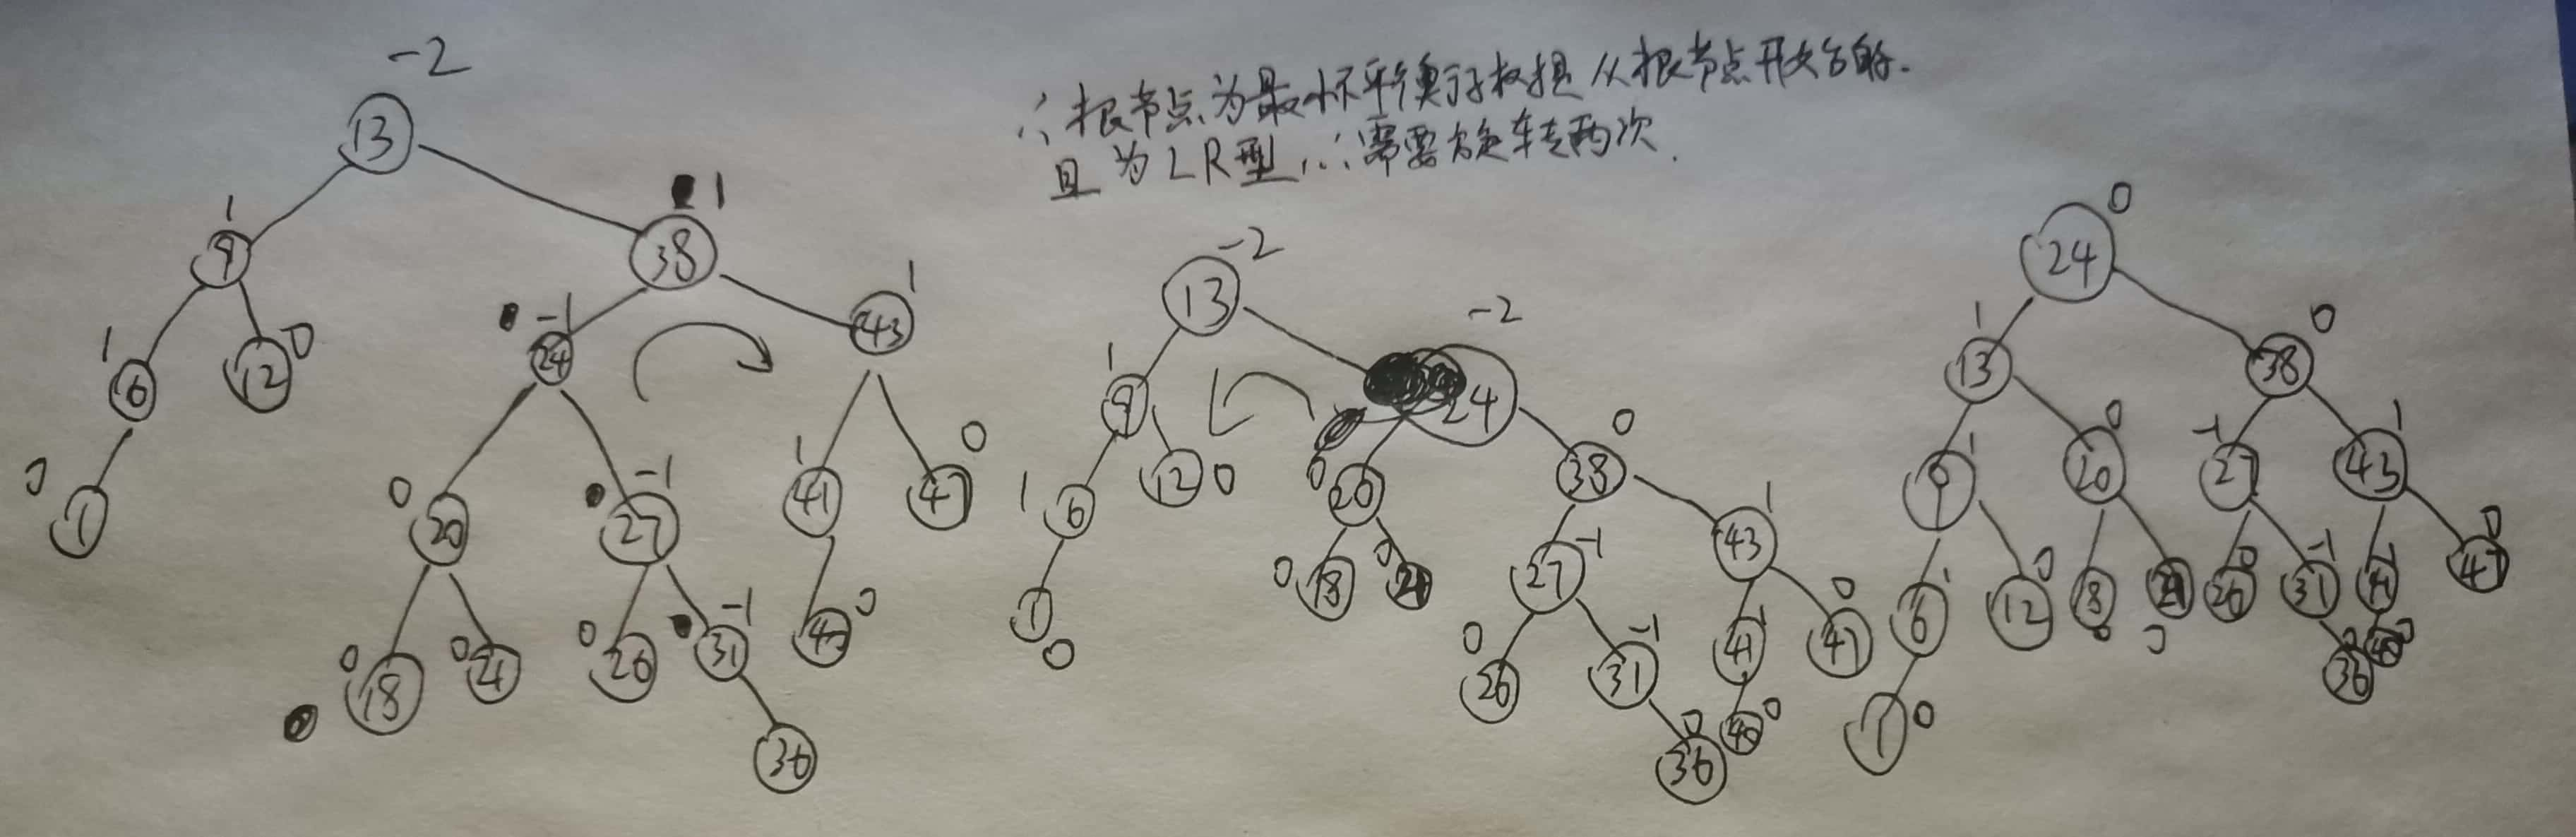 ∴根节点为最小不平衡子权担从根节点开始的.
且为LR型,∴需要旋转两次.
-2
13
1
9
1
38
1
6
12
0
-1
24
1
43
0
1
0
20
-1
27
1
41
0
47
0
18
0
21
0
26
-1
31
40
0
36
-2
13
-2
24
1
9
0
38
1
6
12
0
0
20
1
43
1
0
0
18
0
21
-1
27
0
26
-1
31
1
41
0
47
0
36
40
0
0
24
1
13
0
38
1
9
0
20
-1
27
1
43
1
6
0
12
18
0
21
0
26
0
31
-1
41
1
47
0
1
0
36
0
40
0